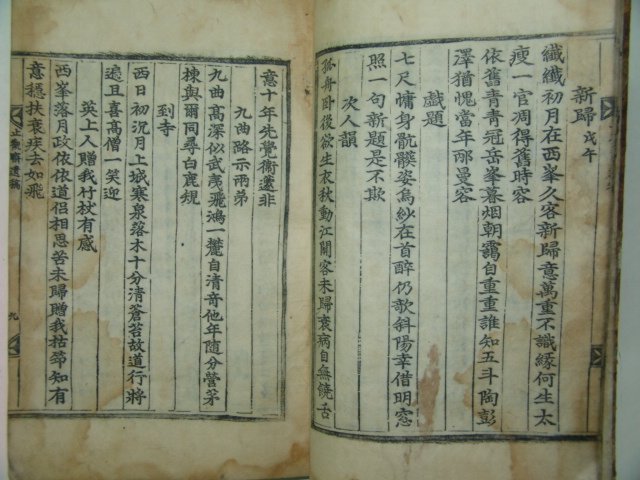 新歸 戊午
纖纖初月在西峯久客新歸意萬重不識緣何生太
瘦一官凋得舊時容
依舊青青冠岳峯暮烟朝靄自重重誰知五斗陶彭
澤猶愧當年邴曼容
戲題
七尺慵身骯髒姿烏紗在首醉仍歌斜陽幸借明窓
照一句新題是不欺
次人韻
孤舟卧後欲生衣秋動江關客未歸衰病自無饒舌
意十年先覺衛蘧非
九曲路示兩弟
九曲高深似武夷飛鴻一麓自清音他年隨分營茅
棟與爾同尋白鹿規
到寺
西日初沉月上城寒泉落木十分清蒼苔故道行將
遍且喜高僧一笑迎
英上人贈我竹杖有感
西峯落月政依依道侶相思苦未歸贈我枯筇知有
意穩扶衰疾去如飛
齋遺稿
九